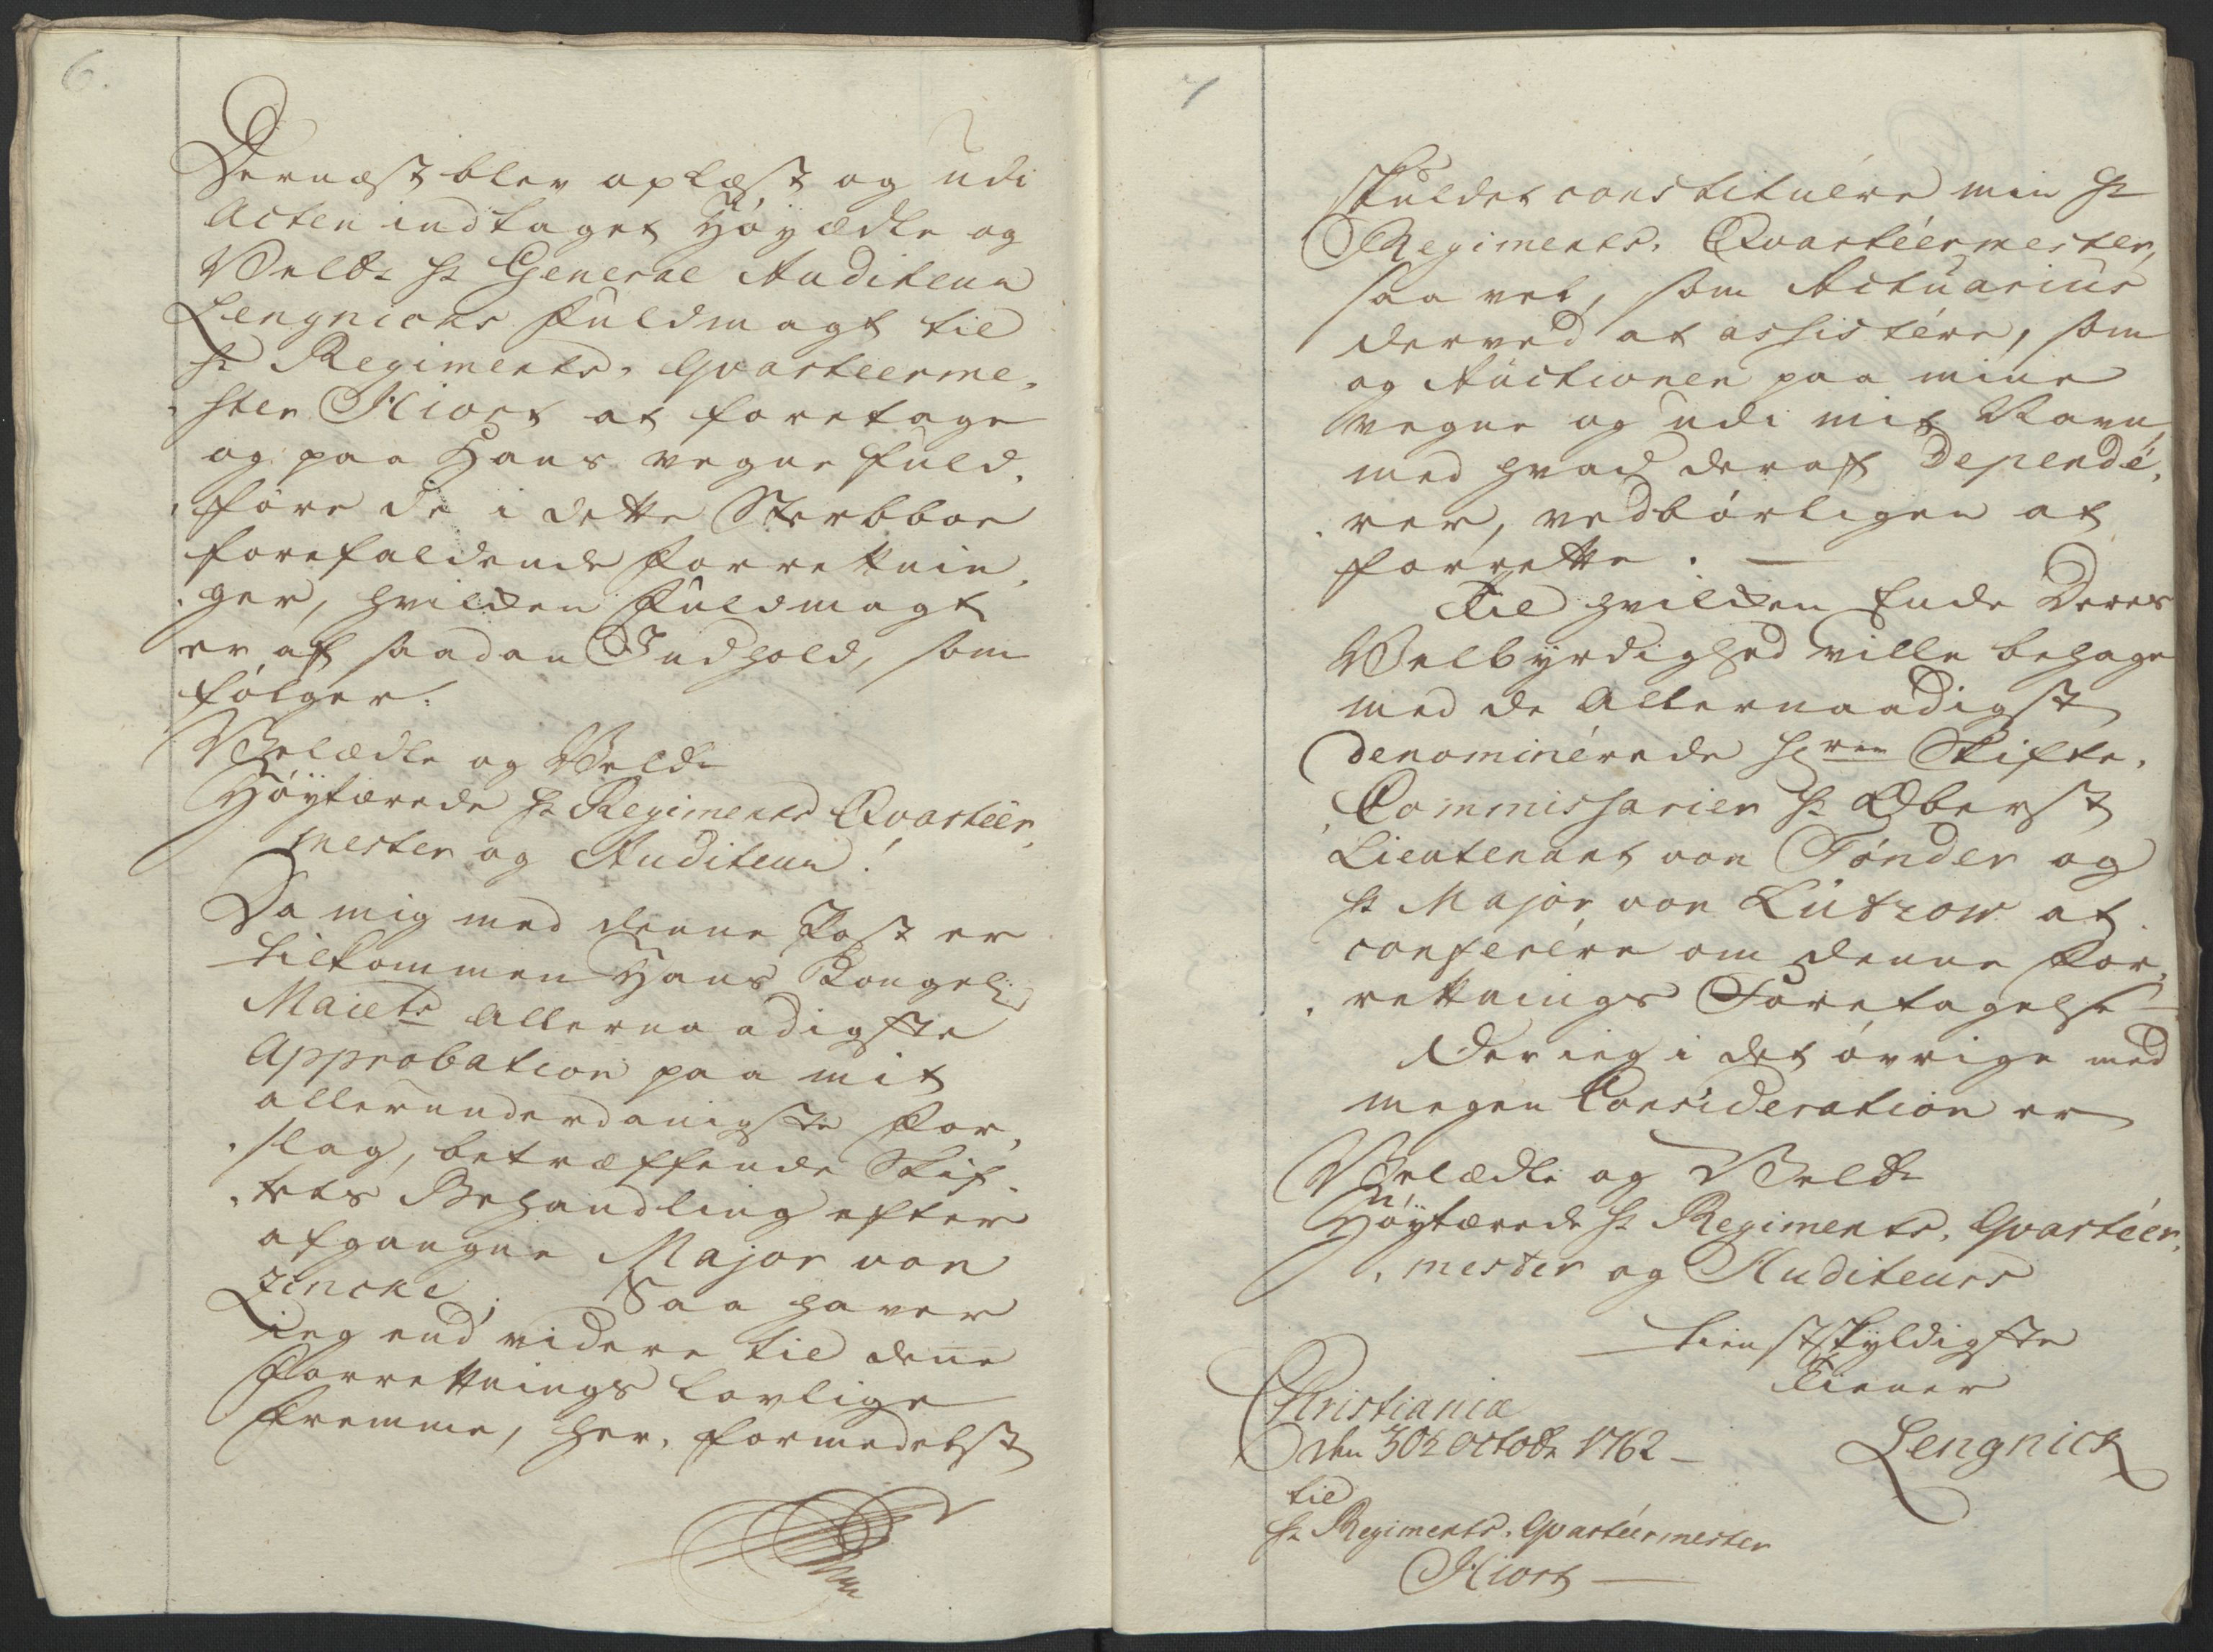 6.
Dernæst blev oplæst og udi
Acten indtaget Høyædle og
Velb: Hr General Auditeur
Lengnicks Fuldmagt til
Hr Regiments-Qvarteerme-
ster Hiort at foretage
og paa Hans vegne fuld-
føre de i dette Sterbboe
forefaldende Forretnin-
ger, hvilken Fuldmagt
er af saadan Indhold, som
følger:
Velædle og Velb:
Høytærede Hr Regiments Qvarteer-
mester og Auditeur!
Da mig med denne Post er
tilkommen Hans Kongel:
Maiets allernaadigste
Approbation paa mit
allerunderdanigste For-
slag, betræffende Skif-
tets Behandling efter
afgangne Major von
Zincke; Saa haver
ieg end videre til denne
Forretnings lovlige
Fremme, her, formedelst
7
skullet constituere min Hr
Regiments-Qvarteermester,
saa vel, som Actuarius
derved at assistere, som
og Auctionen paa mine
vegne og udi mit Navn,
med hvad deraf dependé-
rer, vedbørligen at
forrette. —
Til hvilken Ende Deres
Velbyrdighed ville behage
med de allernaadigst
denominérede Hrrer Skifte-
Commissarier Hr Oberst
Lieutenant von Tønder og
Hr Major von Lützow at
conferére om denne For-
retnings Foretagelse —
Der ieg i det øvrige med
megen Consideration er
Velædle og Velb:
Høytærede Hr Regiments-Qvartéer-
mester og Auditeurs
tienstskyldigste
Tiener
Christiania
den 30te Octobr 1762 —
Lengnick
til
Hr Regiments-Qvartéermester
Hiort —